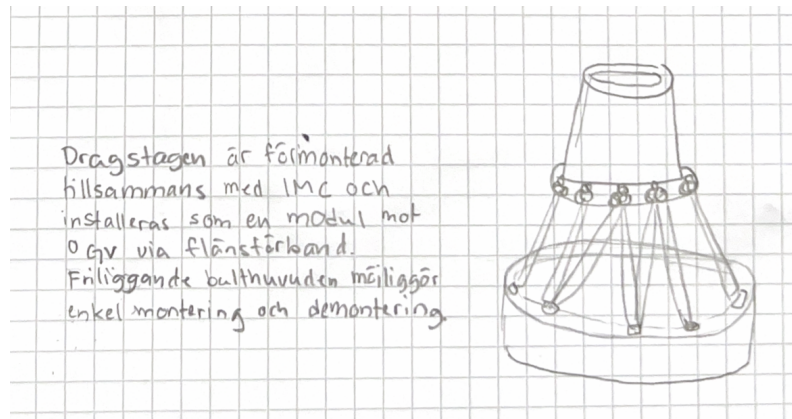 Dragstagen är förmonterad
tillsammans med IMC och
installeras som en modul mot
OGV via flänsförband.
Friliggande bulthuvuden möjliggör
enkel montering och demontering.